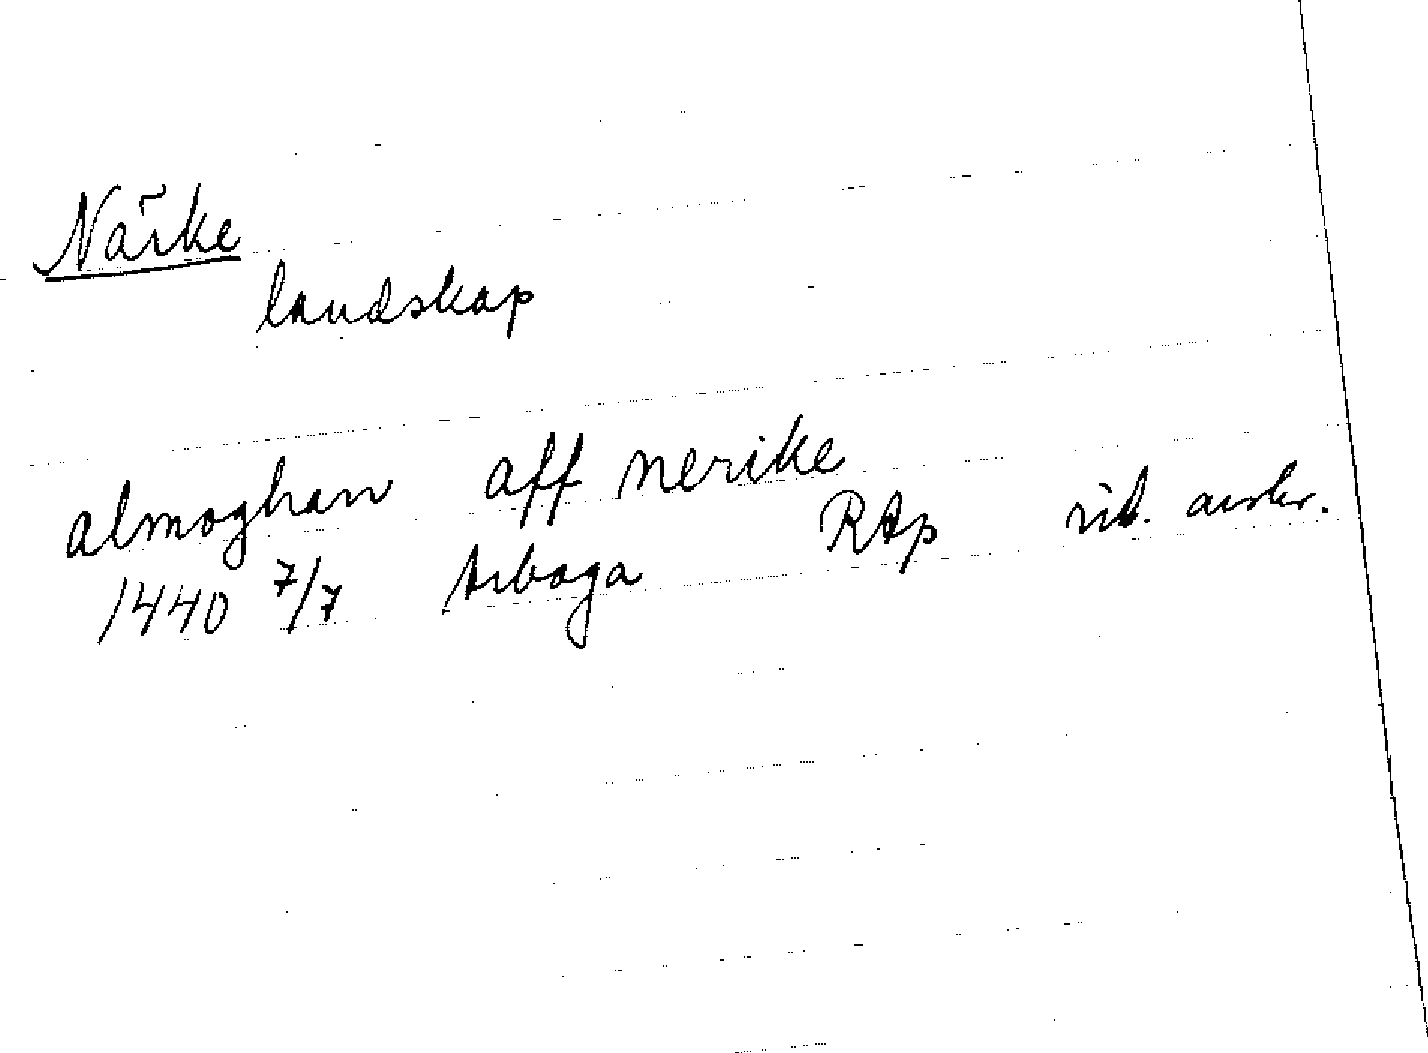 Närke
landskap
almoghan aff nerike
1440 7/7 Arboga RAp vid. avskr.